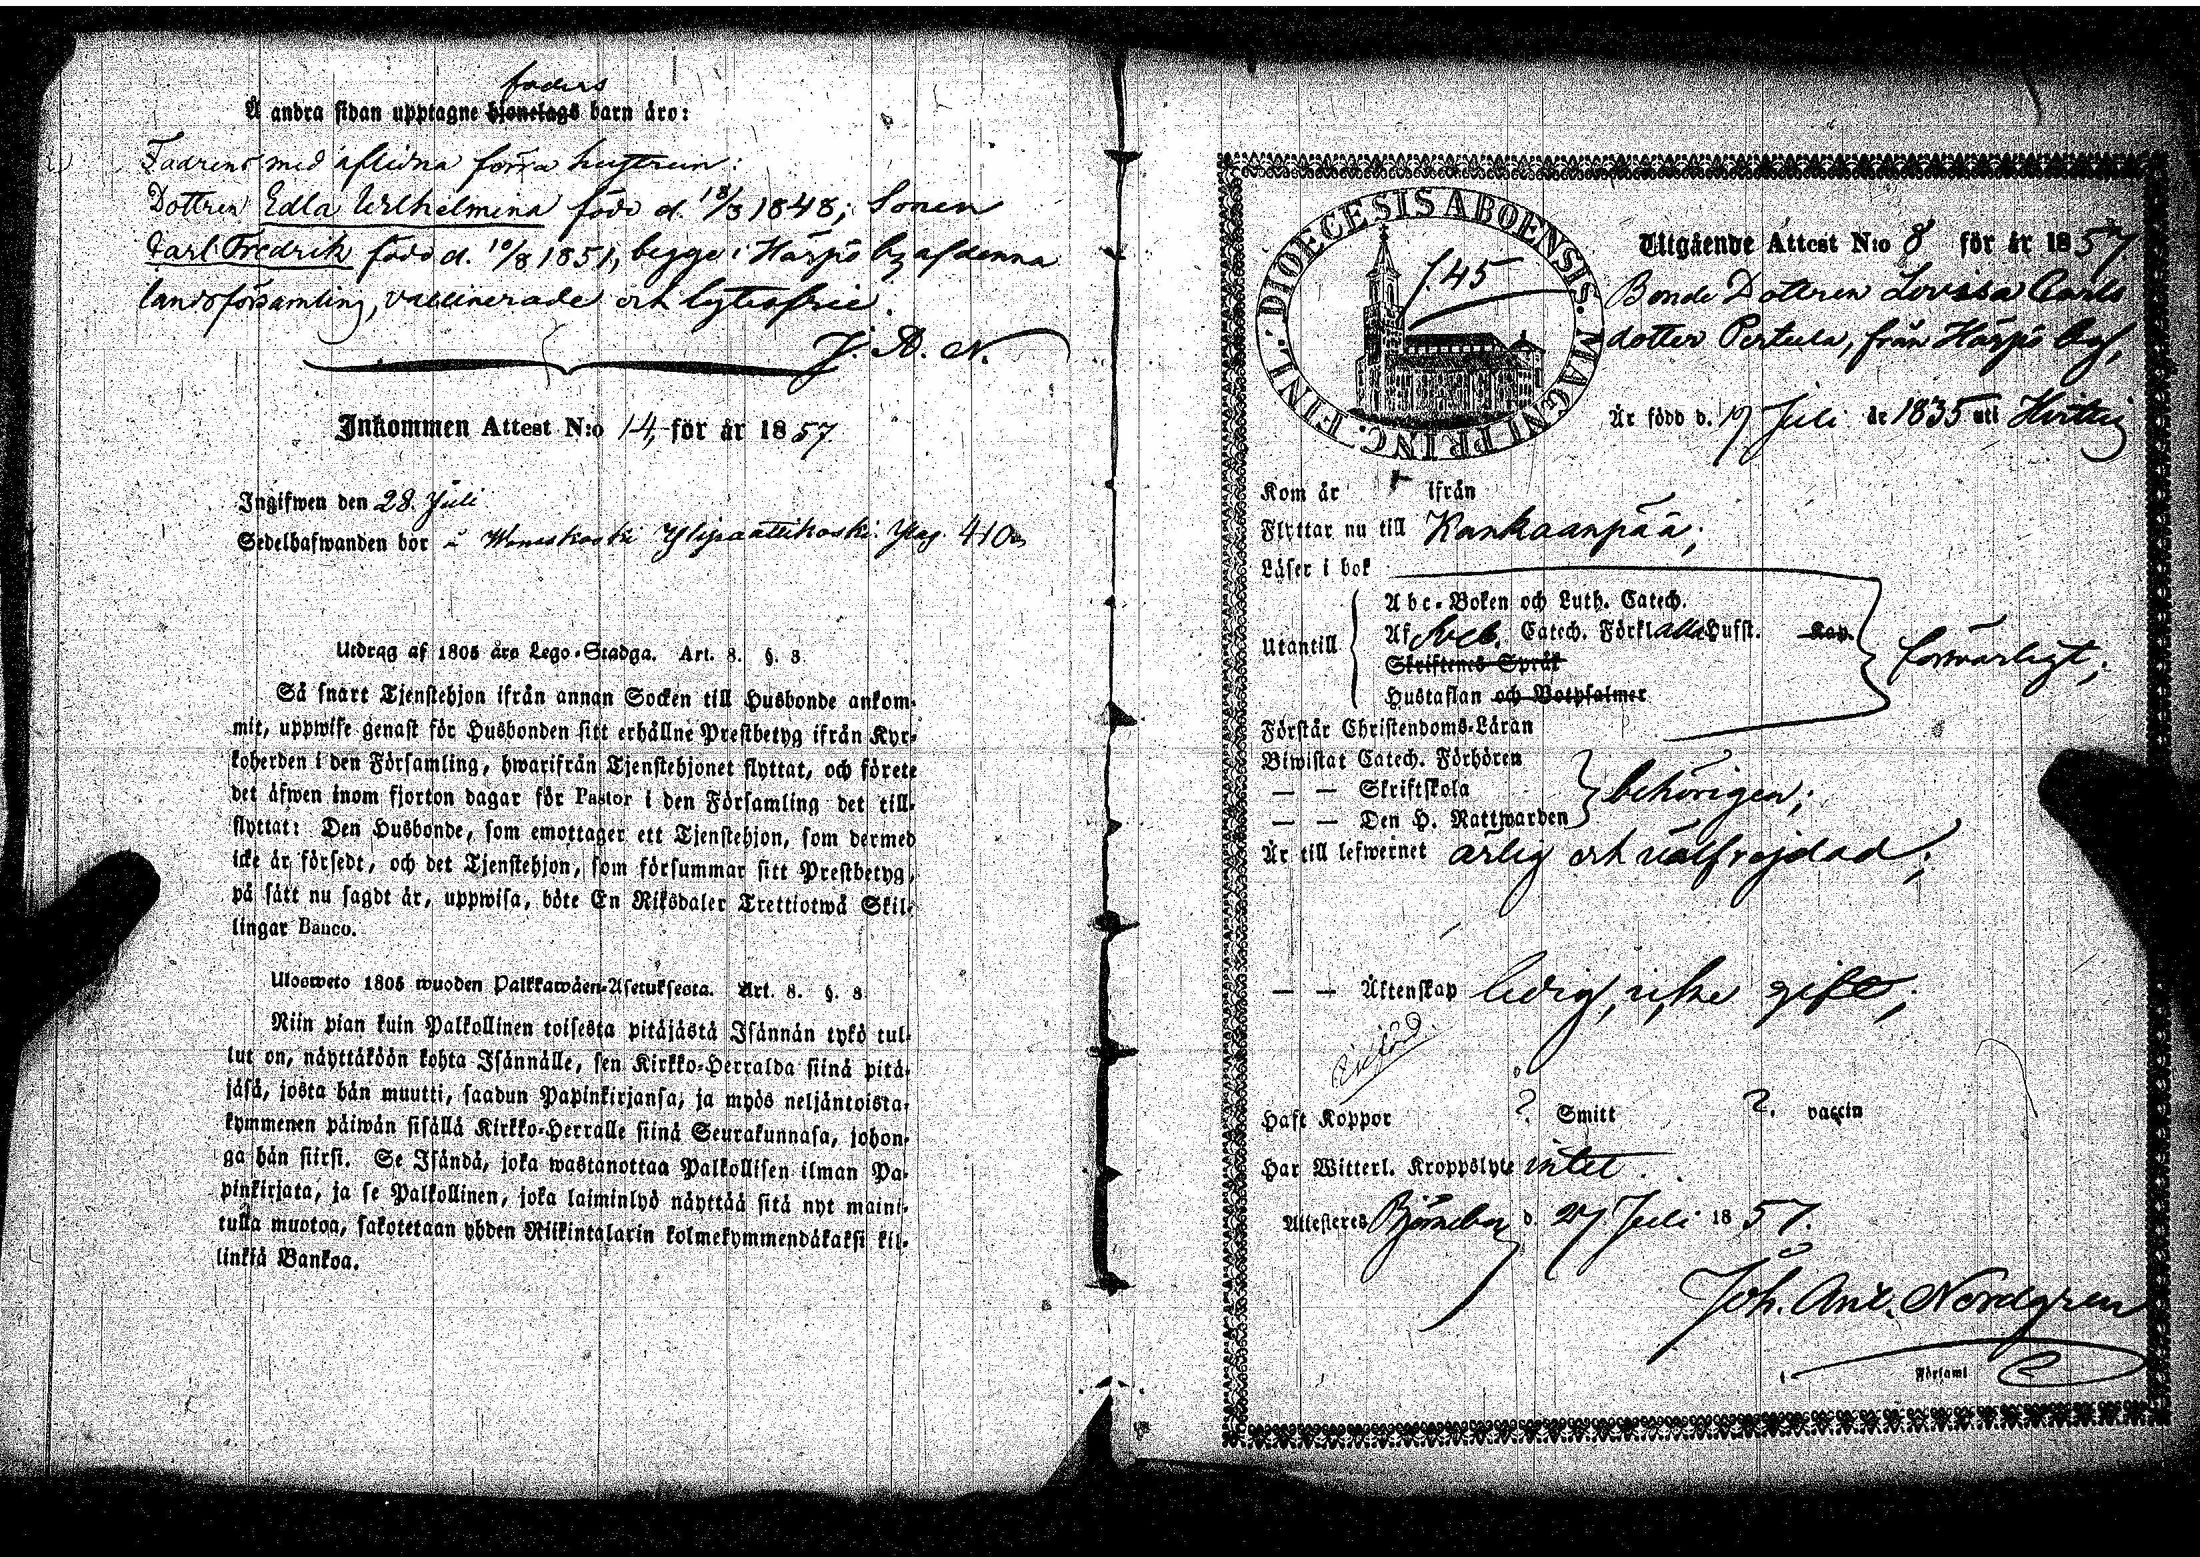 faders
Å andra sidan upptagne hjonelags barn äro:
Fadrens med aflidna förra hustrun:
Dottren Edla Wilhelmina född d. 18/3 1848; Sonen
Carl Fredrik född d. 10/8 1851, begge i Härpö by af denna
landsförsamling, vaccinerade och lytesfrie.
J. A. N.
Inkommen Attest N:o 14, för år 1857
Ingifwen den 28. Juli
Sedelhafwanden bor å Ylipaattikoski. pag. 410
Utdrag af 1805 års Lego-Stadga. Art. 8. §. 8
Så snart Tjenstehjon ifrån annan Socken till Husbonde ankom-
mit, uppwise genast för Husbonden sitt erhållne Prestbetyg ifrån Kyr-
koherden i den Församling, hwarifrån Tjenstehjonet flyttat, och förete
det äfwen inom fjorton dagar för Pastor i den Församling det till-
flyttat: Den Husbonde, som emottager ett Tjenstehjon, som dermed
icke är försedt, och det Tjenstehjon, som försummar sitt Prestbetyg,
på sätt nu sagdt är, uppwisa, böte En Riksdaler Trettiotwå Skil-
lingar Banco.
Ulosweto 1805 wuoden Palkkawäen-Asetuksesta. Art. 8. §. 8
Niin pian kuin Palkollinen toisesta pitäjästä Isännän tykö tul-
lut on, näyttäköön kohta Isännälle, sen Kirkko-Herralda siinä pitä-
jäsä, josta hän muutti, saadun Papinkirjansa, ja myös neljäntoista-
kymmenen päiwän sisällä Kirkko-Herralle siinä Seurakunnasa, johon-
ga hän siirsi. Se Isändä, joka wastanottaa Palkollisen ilman Pa-
pinkirjata, ja se Palkollinen, joka laiminlyö näyttää sitä nyt maini-
tulla muotoa, sakotetaan yhden Riikintalarin kolmekymmendäkaksi kil-
linkiä Bankoa.
DIOECESIS ABOENSIS. MAGNI PRINC. FINL.
f. 45
Utgående Attest N:o 8 för år 1857
Bonde Dottren Lovisa Carls
dotter Pertula, från Härpö by,
Är född d. 19 Juli år 1835 uti Hvittis
Kom år ifrån
Flyttar nu till Kankaanpää;
Läser i bok
Utantill
Abc-Boken och Luth. Catech.
Af Sveb. Catech. Förkl alla Husst. Kap.
Skriftenes Språk
Hustaflan och Botpsalmer
försvarligt;
Förstår Christendoms-Läran
Biwistat Catech. Förhören
— — Skriftskola
— — Den H. Nattwarden
behörigen;
Är till lefwernet ärlig och välfrejdad;
— — Äktenskap ledig, icke gift;
Haft Koppor ? Smitt ?. vaccin
Har Witterl. Kroppslyte intet.
Attesteres Björneborg d. 27 Juli 1857.
Joh. Ant. Nordgren
Församl